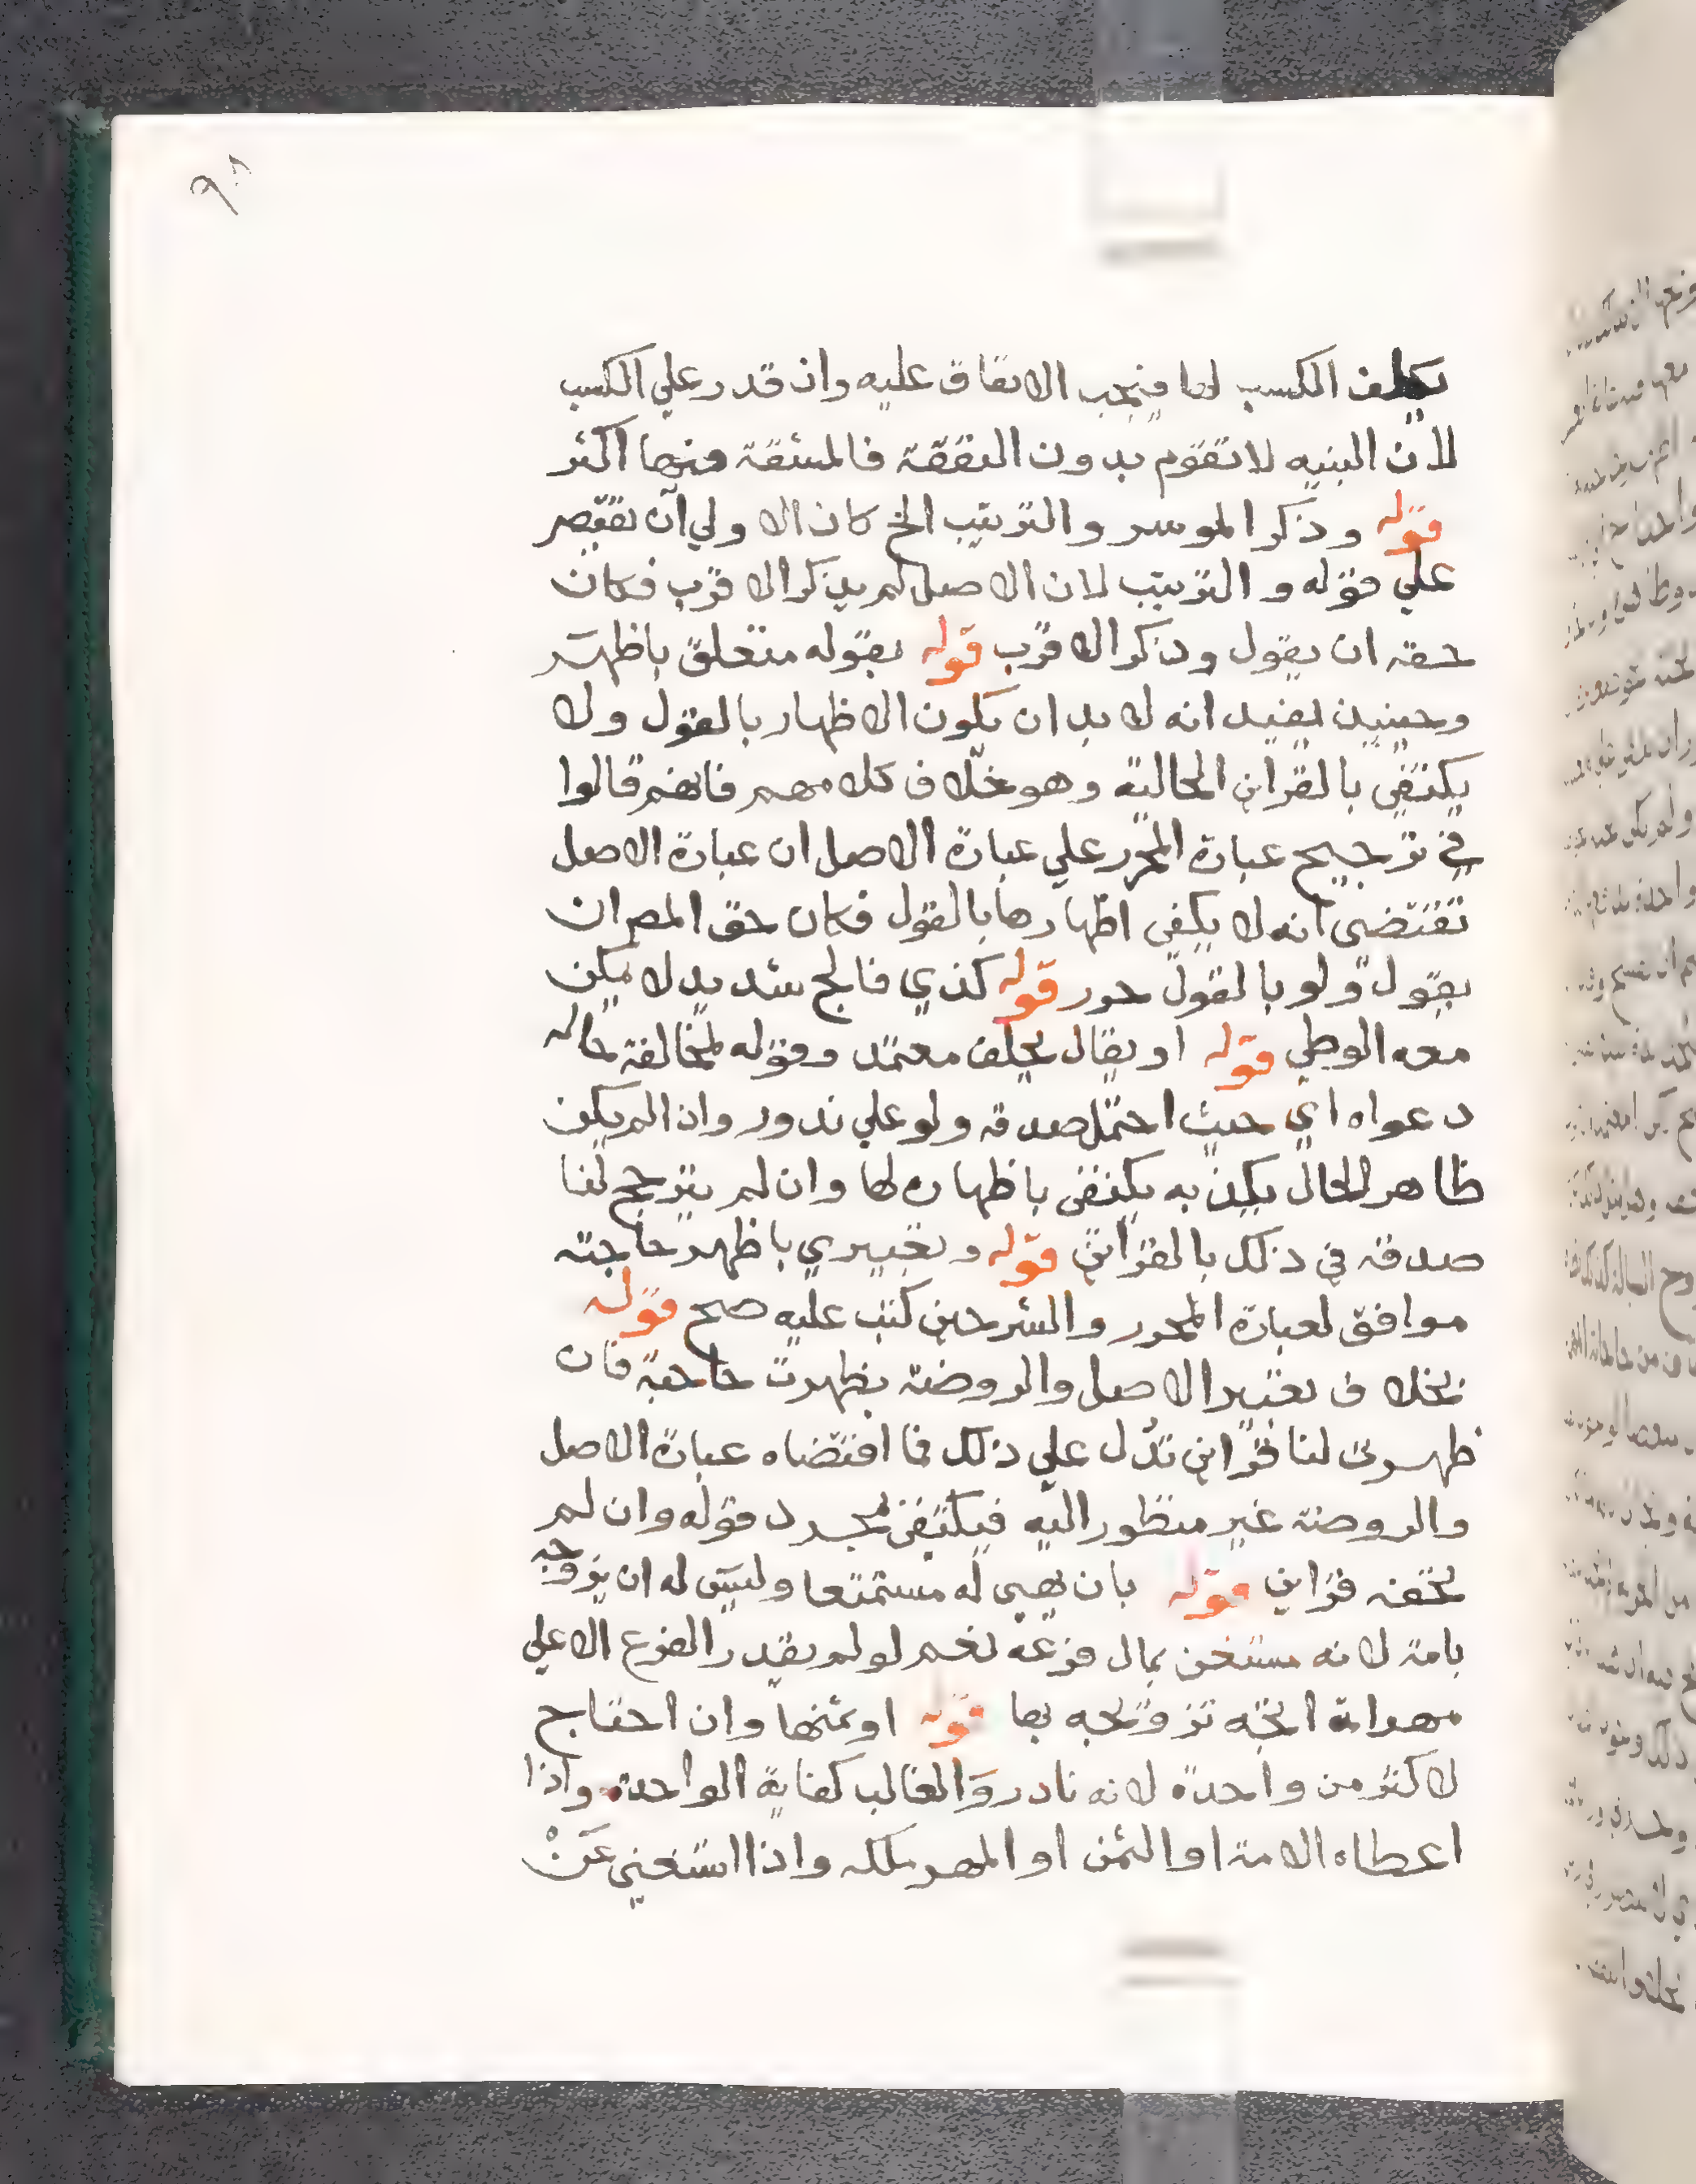 ٩٠٨
يكلف الكسب لها فيجب الانفاق عليه وان قدر علي الكسب
لان البنيه لا تقوم بدون النفقة فالمشقة فيها اكثر
قوله وذكر الموسر والترتيب الخ كان الاولي ان يقتصر
علي قوله والترتيب لان الاصل لم يذكر الاقرب فكان
حقه ان يقول وذكر الاقرب قوله بقوله متعلق باظهر
وحينيذ يفيد انه لا بد ان يكون الاظهار بالقول ولا
يكتفي بالقراين الحالية وهو خلاف كلامهم فانهم قالوا
في ترجيح عبارة المحرر علي عبارة الاصل ان عبارة الاصل
تقتضي انه لا يكفي اظهارها بالقول فكان حق المصر ان
يقول ولو بالقول حرر قوله كذي فالج شديد لا يمكن
معه الوطي قوله او يقال يحلف معتمد وقوله لمخالفة حاله
دعواه اي حيث احتمل صدقه ولو علي ندور واذا لم يكن
ظاهر الحال يكذبه يكتفي باظهاره لها وان لم يترجح لنا
صدقه في ذلك بالقراين قوله وتعبيري باظهر حاجته
موافق لعبارة المحرر والشرحين كتب عليه صح قوله
بخلاف تعبير الاصل والروضة بظهرت حاجته فان
ظهرت لنا قراين تدل علي ذلك فما اقتضاه عبارة الاصل
والروضة غير منظور اليه فيكتفي بمجرد قوله وان لم
تحفه قراين قوله بان يهيي له مستمتعا وليس له ان يزوجه
بامة لانه مستغن بمال فرعه نعم لو لم يقدر الفرع الا علي
مهر امة اتجه تزويجه بها قوله او ثمنها وان احتاج
لاكثر من واحدة لانه نادر والغالب كفاية الواحدة واذا
اعطاه الامة او الثمن او المهر ملكه واذا استغني عن